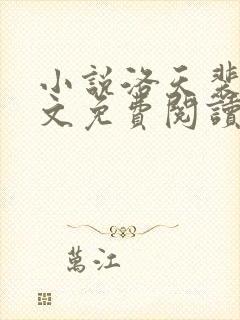 小說洛天斐
文免費閱讀
萬江